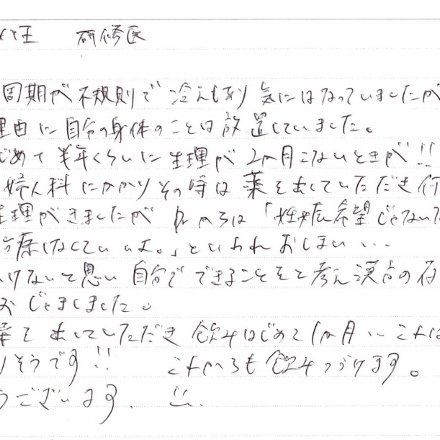 女王 研修医
周期が不規則で冷えもあり気にはなっていましたが
理由に自分の身体のことは放置していました。
じめて半年くらいに生理が2か月こないときが!!
婦人科にかかりその時は薬を出していただき行
生理がきましたが Dr.からは「妊娠希望じゃないな
治療しなくていいよ。」といわれおしまい…
いけないと思い自分でできることをと考え漢方の存
おじゃましました。
薬を出していただき飲みはじめて1か月… これは
りそうです!! これからも飲みつづけます。
うございます.